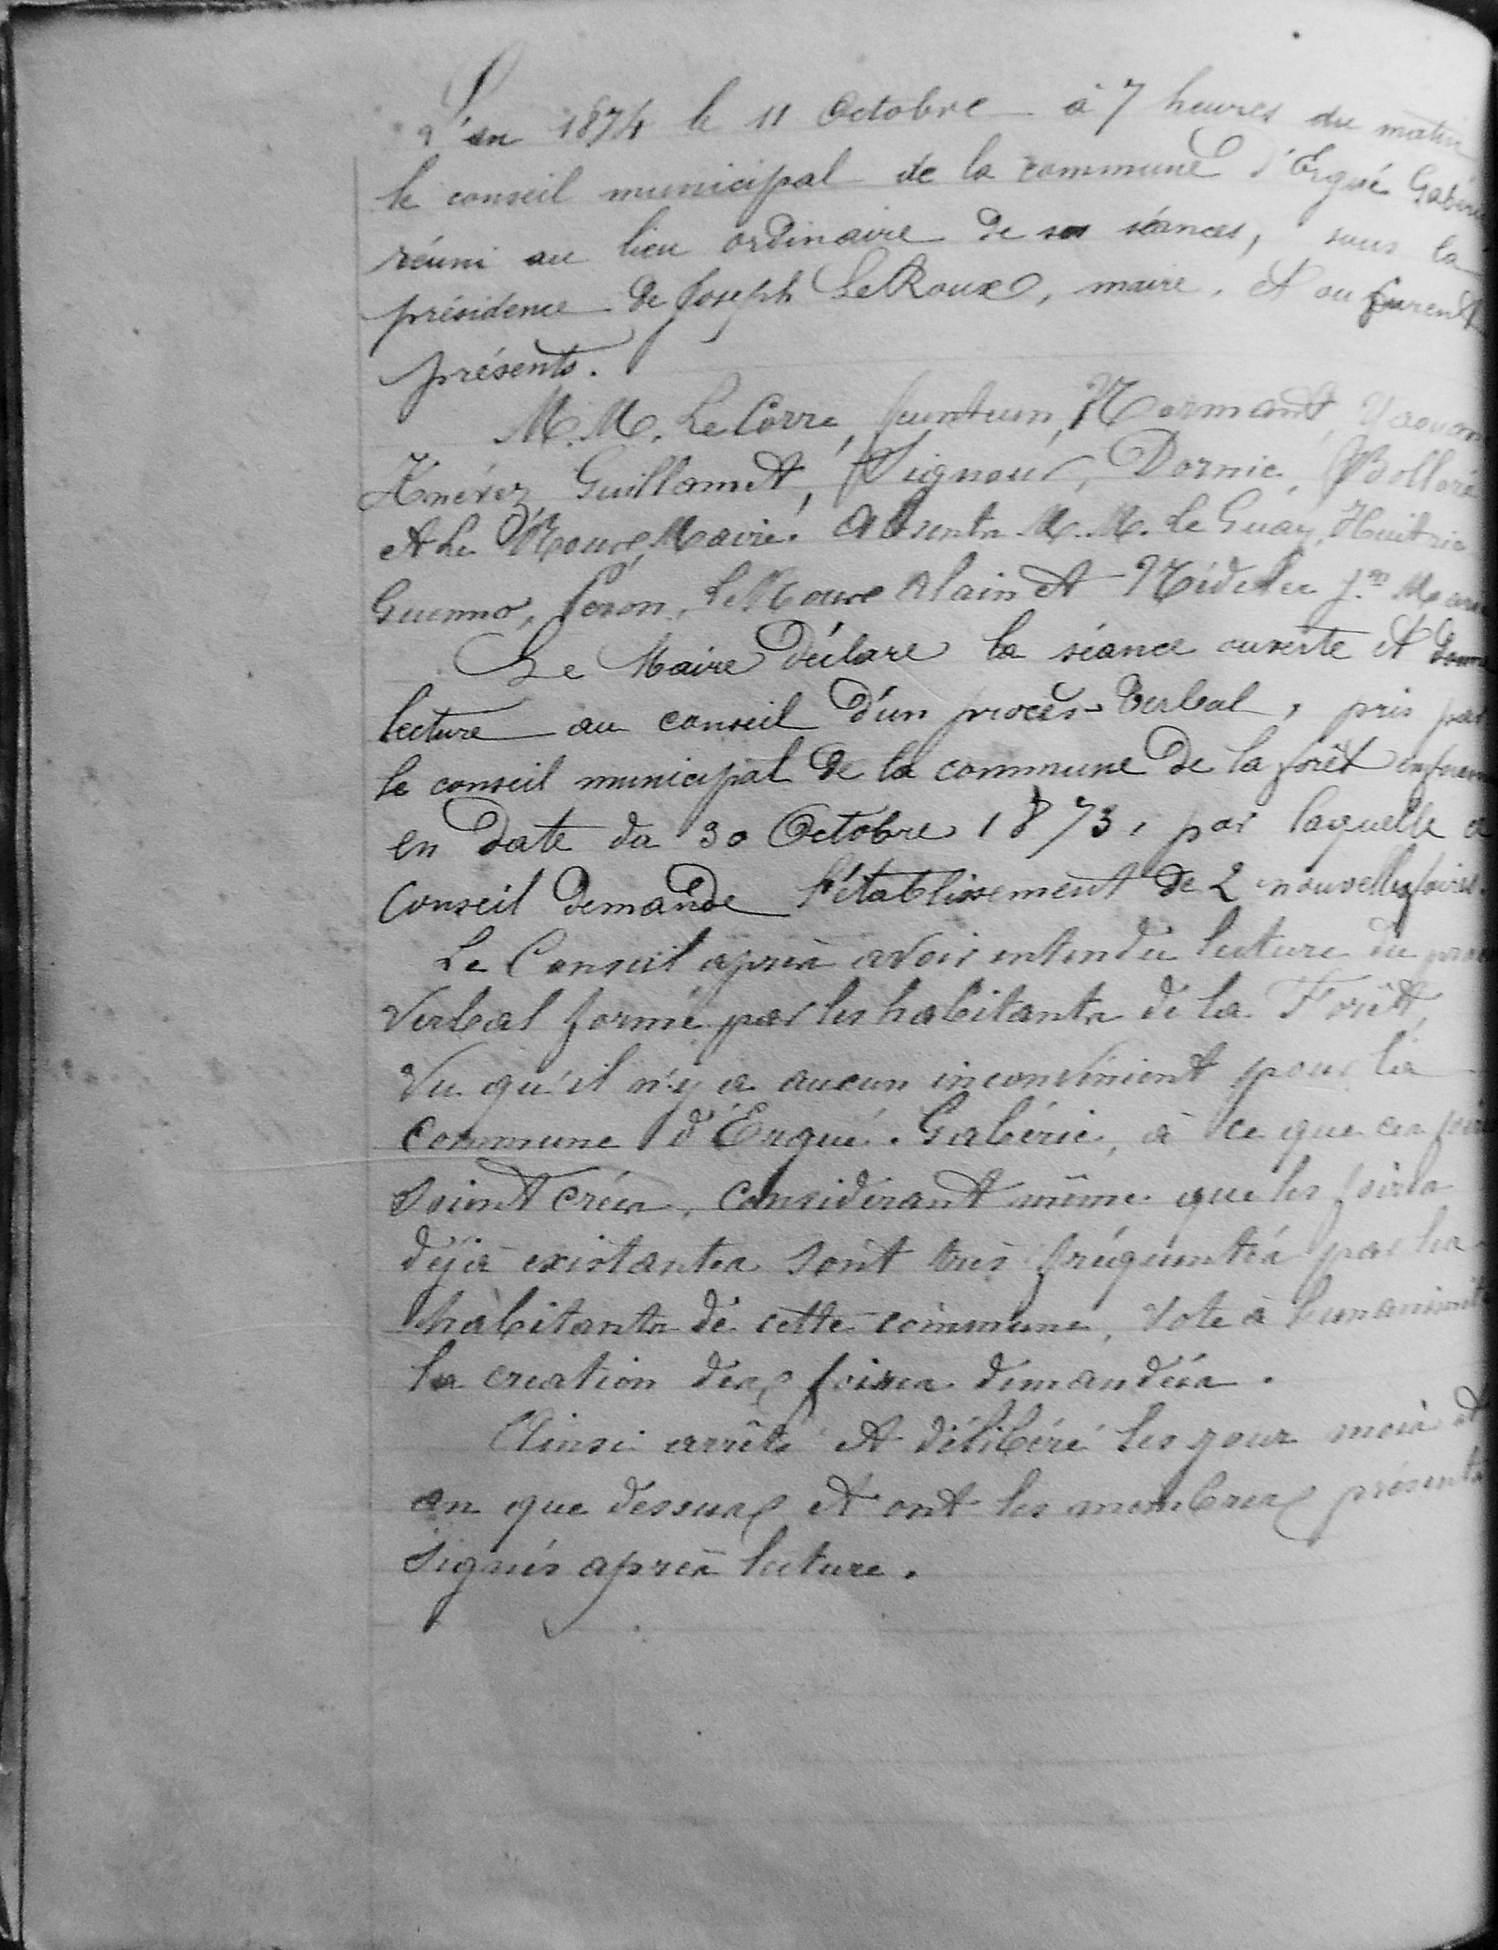 L'an 1874 le 11 Octobre à 7 heures du matin
le conseil municipal de la commune d'Ergué Gabéric
réuni au lieu ordinaire de ses séances, sous la
présidence de Joseph Le Roux, maire. et ou furent
présents.
M.M. Le Corre, feunteun, Normant,
Guillamet, Signour, Dornic, Bolloré
et Le Roux, Maire. Absents M.M. le Guay, Huitric
Guenno, feron, Le Roux Alain et Nédelec J.n Marie
Le Maire déclare la séance ouverte et donne
lecture au conseil d'un procès-Verbal, pris par
le conseil municipal de la commune de la forêt
en date da 30 Octobre 1873, par laquelle ce
Conseil demande l'établissement de 2 nouvelles foires.
Le Conseil après avoir entendu lecture du
Verbal formé par les habitants de la Forêt,
Vu qu'il n'y a aucun inconvénient pour la
Commune d'Ergué-Gabéric, à ce que ces foires
soient créés, considérant même que les foires
déjà existantes sont très fréquentés par les
habitants de cette commune, Vote à l'unanimité
la création des foires demandées.
Ainsi arrêté et délibéré les jour mois et
an que dessus et ont les membres présents
signés après lecture.